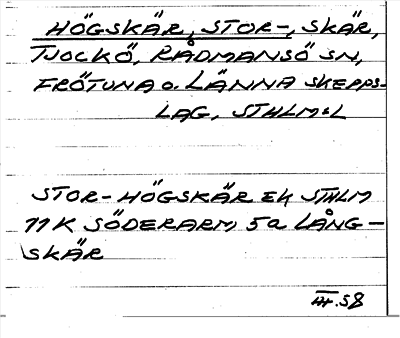 HÖGSKÄR, STOR-, SKÄR,
TJOCKÖ, RÅDMANSÖ SN,
FRÖTUNA O. LÄNNA SKEPPS-
LAG, STHLMS L
STOR-HÖGSKÄR EK STHLM
11K SÖDERARM 5a LÅNG-
SKÄR
III.58